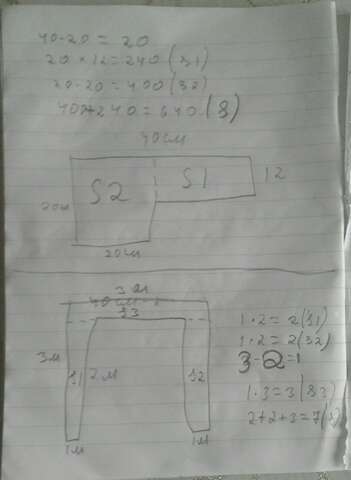 40-20=20
20×12=240(S1)
20·20=400(S2)
400+240=640.(S)
40см
S2 S1 12
20см
20см
3м
S3
3м S1 2м S2
1м 1м
1·2=2(S1)
1·2=2(S2)
3-2=1
1·3=3(S3
2+2+3=7(S)